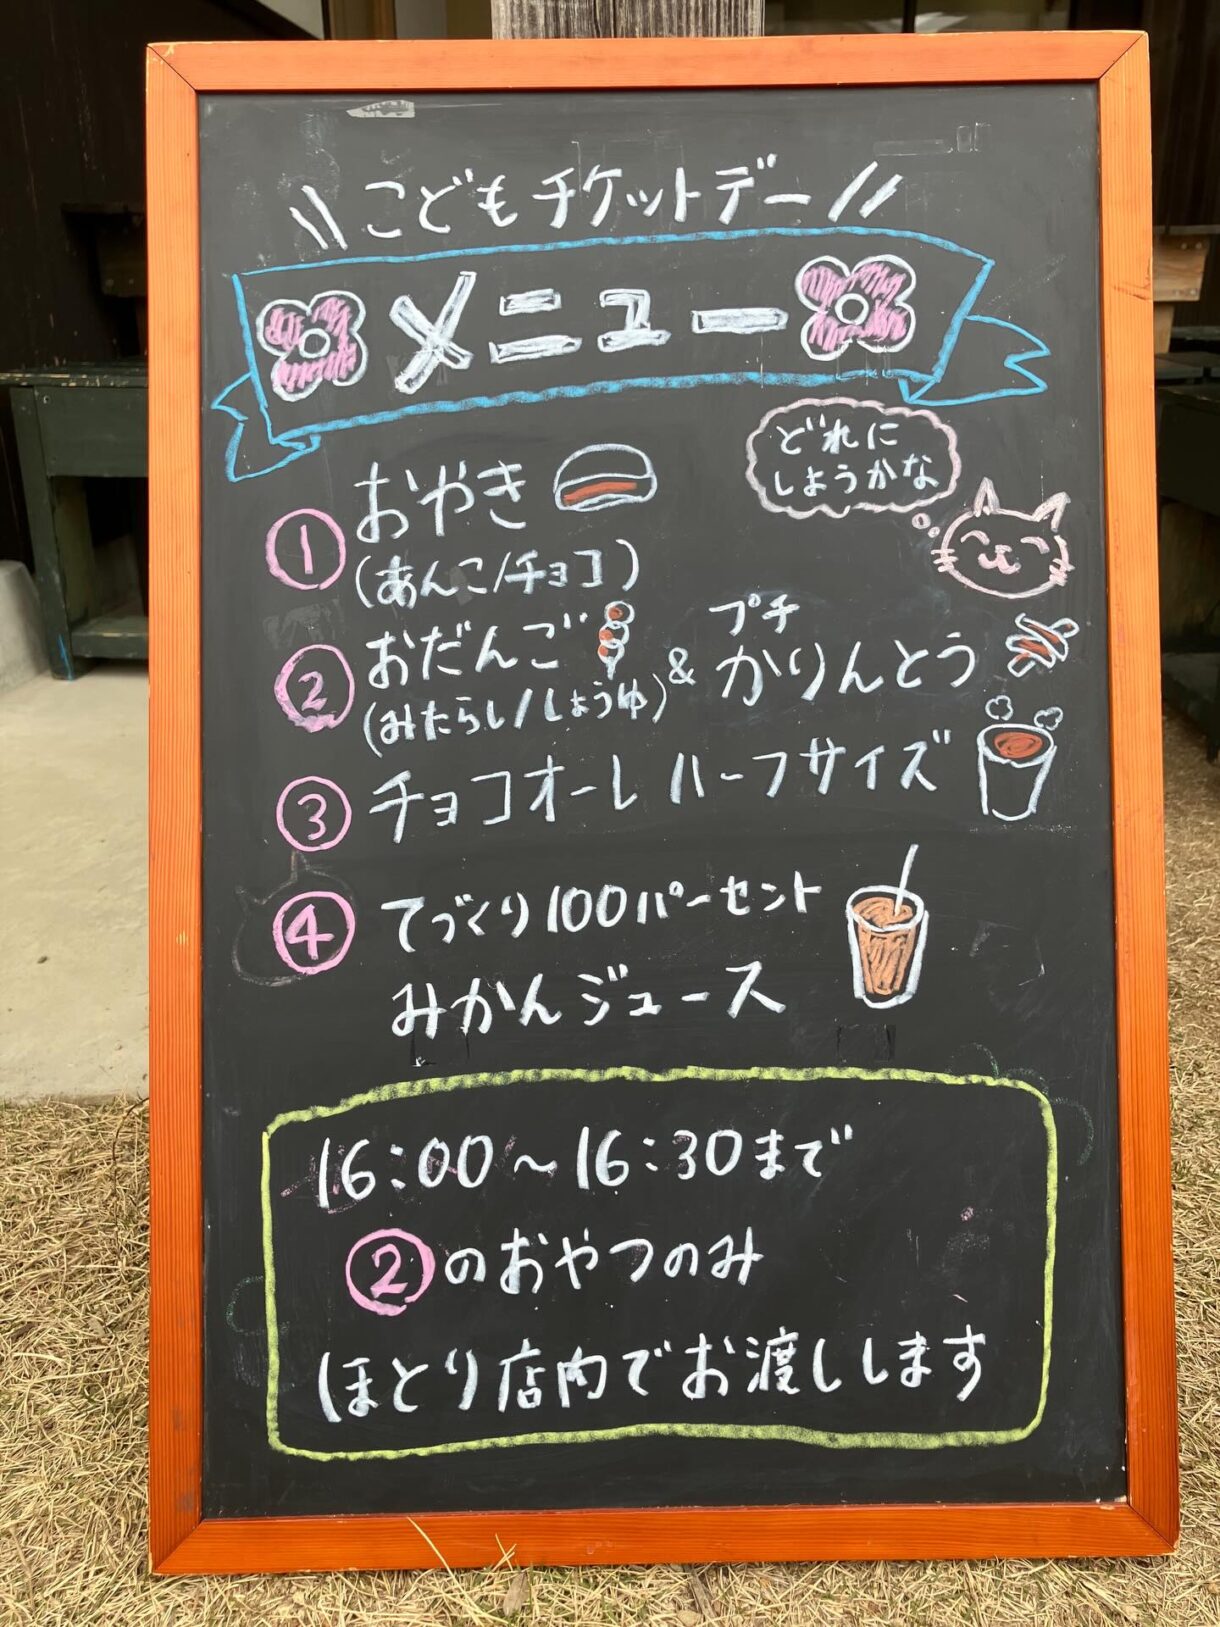 \\こどもチケットデー//
メニュー
どれに
しようかな
① おやき
(あんこ/チョコ)
② おだんご & プチ かりんとう
(みたらし/しょうゆ)
③ チョコオーレ ハーフサイズ
④ てづくり100パーセント
みかんジュース
16:00〜16:30まで
②のおやつのみ
ほとり店内でお渡しします